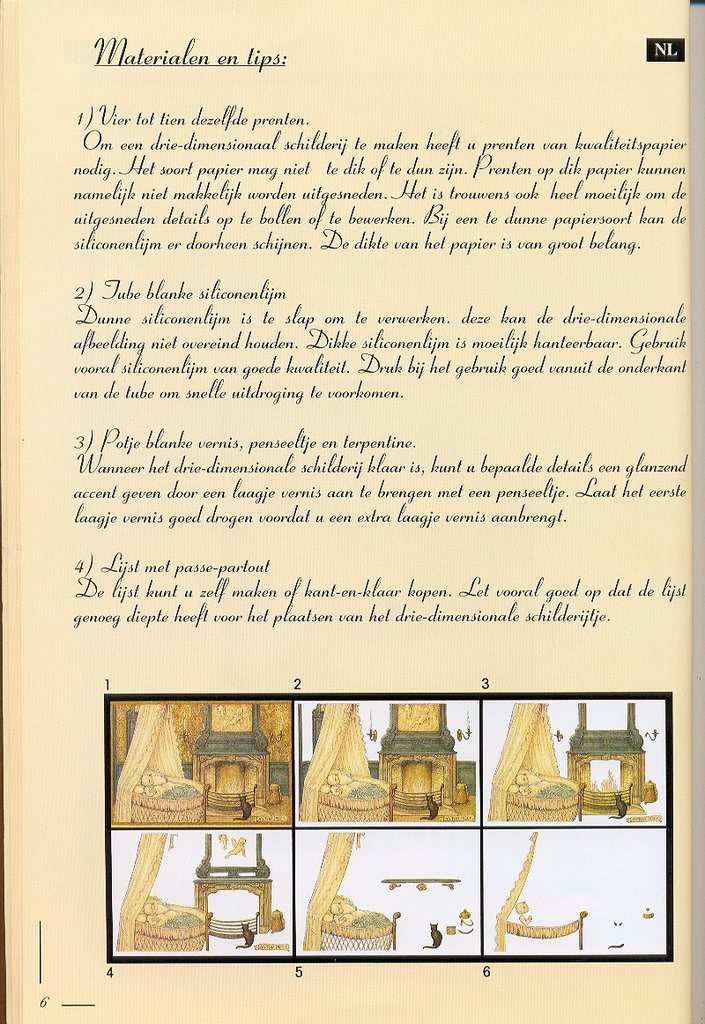 Materialen en tips:
NL
1) Vier tot tien dezelfde prenten.
Om een drie-dimensionaal schilderij te maken heeft u prenten van kwaliteitspapier
nodig. Het soort papier mag niet te dik of te dun zijn. Prenten op dik papier kunnen
namelijk niet makkelijk worden uitgesneden. Het is trouwens ook heel moeilijk om de
uitgesneden details op te bollen of te bewerken. Bij een te dunne papiersoort kan de
siliconenlijm er doorheen schijnen. De dikte van het papier is van groot belang.
2) Tube blanke siliconenlijm
Dunne siliconenlijm is te slap om te verwerken. deze kan de drie-dimensionale
afbeelding niet overeind houden. Dikke siliconenlijm is moeilijk hanteerbaar. Gebruik
vooral siliconenlijm van goede kwaliteit. Druk bij het gebruik goed vanuit de onderkant
van de tube om snelle uitdroging te voorkomen.
3) Potje blanke vernis, penseeltje en terpentine.
Wanneer het drie-dimensionale schilderij klaar is, kunt u bepaalde details een glanzend
accent geven door een laagje vernis aan te brengen met een penseeltje. Laat het eerste
laagje vernis goed drogen voordat u een extra laagje vernis aanbrengt.
4) Lijst met passe-partout
De lijst kunt u zelf maken of kant-en-klaar kopen. Let vooral goed op dat de lijst
genoeg diepte heeft voor het plaatsen van het drie-dimensionale schilderijtje.
1 2 3
4 5 6
6